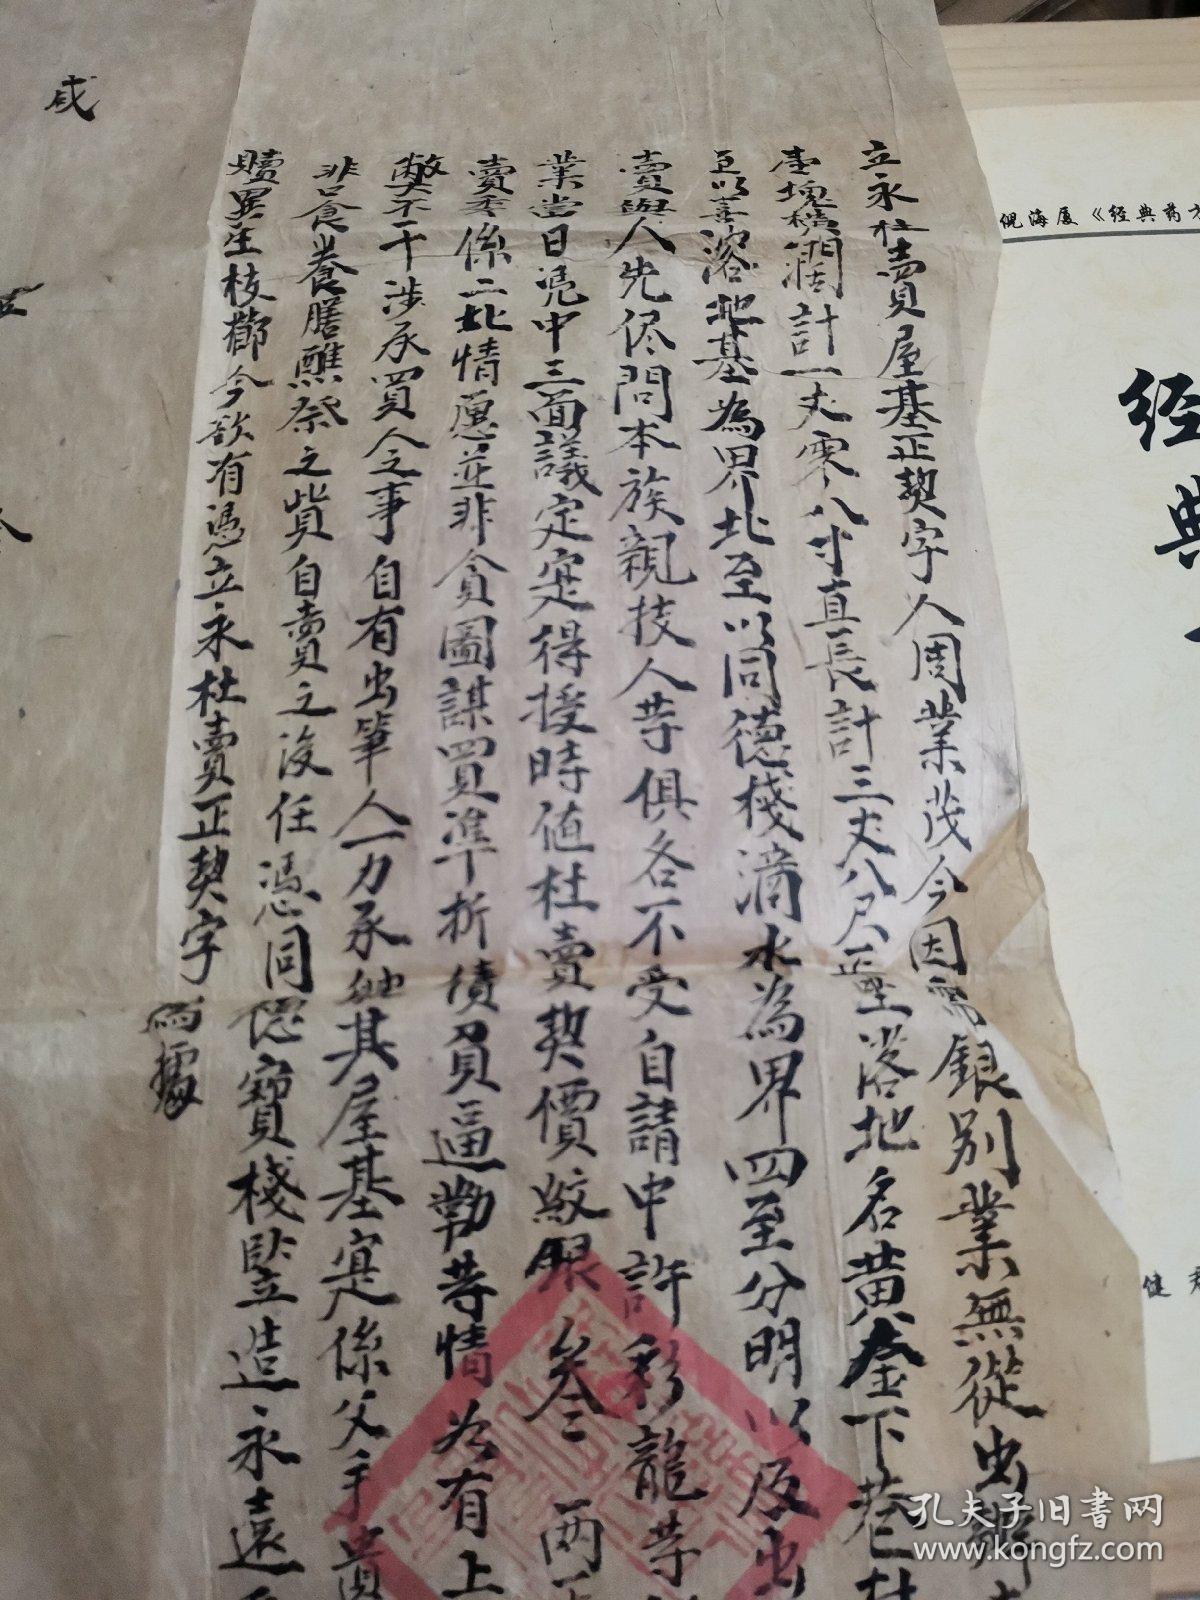 立永杜賣屋基正契字人周業茂今因需銀別業無從出
壹塊橫濶計一丈零八寸直長計三丈八尺正坐落地名黄金下巷
至以善濬地基為界北至以同德棧滴水為界四至分明以及出
賣與人先侭問本族親技人芓俱各不受自請中許彩龍芓
業當日凴中三面議定寔得授時值杜賣契價紋銀叁兩
賣委係二比情愿並非貪圖謀買準折債負逼勒芓情若有上
弊不干涉承買人之事自有出筆人一力承躭其屋基寔係父手
非口食養膳醮祭之貲自賣之後任憑同德寶棧竪造永遠
贖異生枝節今欲有憑立永杜賣正契字
為據
咸
倪海厦《经典药方
经典
健
孔夫子旧书网
www.kongfz.com